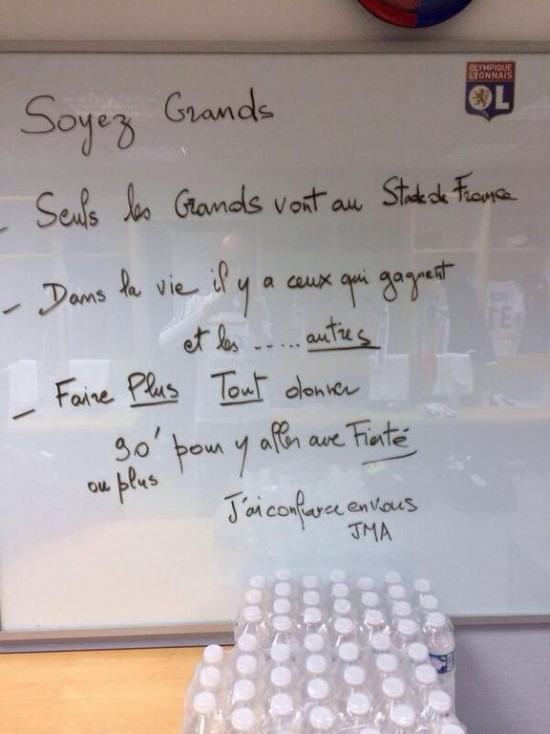 OLYMPIQUE
LYONNAIS
OL
Soyez Grands
- Seuls les Grands vont au Stade de France
- Dans la vie il y a ceux qui gagnent
et les ..... autres
- Faire Plus Tout donner
90' pour y aller avec Fierté
ou plus
J'ai confiance en vous
JMA